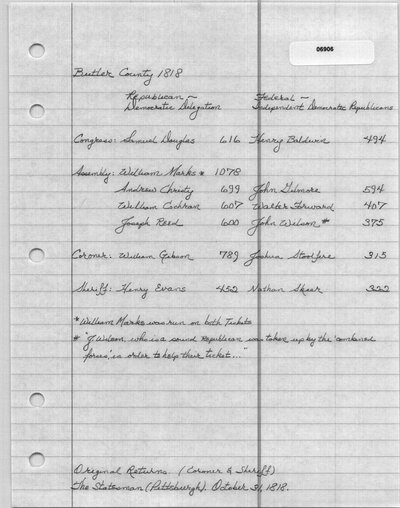 06906
Butler County 1818
Republican - Federal -
Democratic Delegation Independent Democratic Republicans
Congress: Samuel Douglas 616 Henry Baldwin 494
Assembly: William Marks * 1078
Andrew Christy 699 John Gilmore 594
William Cochran 607 Walter Forward 407
Joseph Reed 600 John Wilson # 375
Coroner: William Gibson 789 Joshua Stoolfire 315
Sheriff: Henry Evans 452 Nathan Skeer 322
* William Marks was run on both Tickets
# "J. Wilson, who is a sound Republican was taken up by the 'combined
forces' in order to help their ticket..."
Original Returns. (Coroner & Sheriff)
The Statesman (Pittsburgh). October 31, 1818.